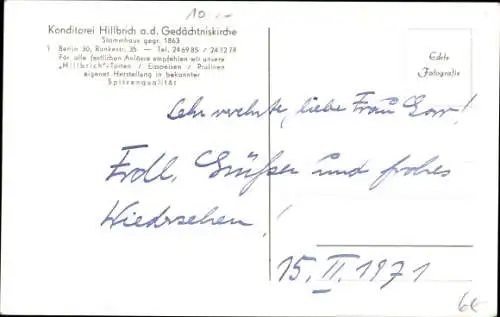 10.-
Konditorei Hillbrich a.d. Gedächtniskirche
Stammhaus gegr. 1863
1 Berlin 30, Rankestr. 35 — Tel. 246985 / 241278
Für alle festlichen Anlässe empfehlen wir unsere
„Hillbrich"-Torten / Eisspeisen / Pralinen
eigener Herstellung in bekannter
Spitzenqualität
Echte
Fotografie
Sehr verehrte, liebe Frau
Frdl. Grüße und frohes
Wiedersehen!
15. II. 1971